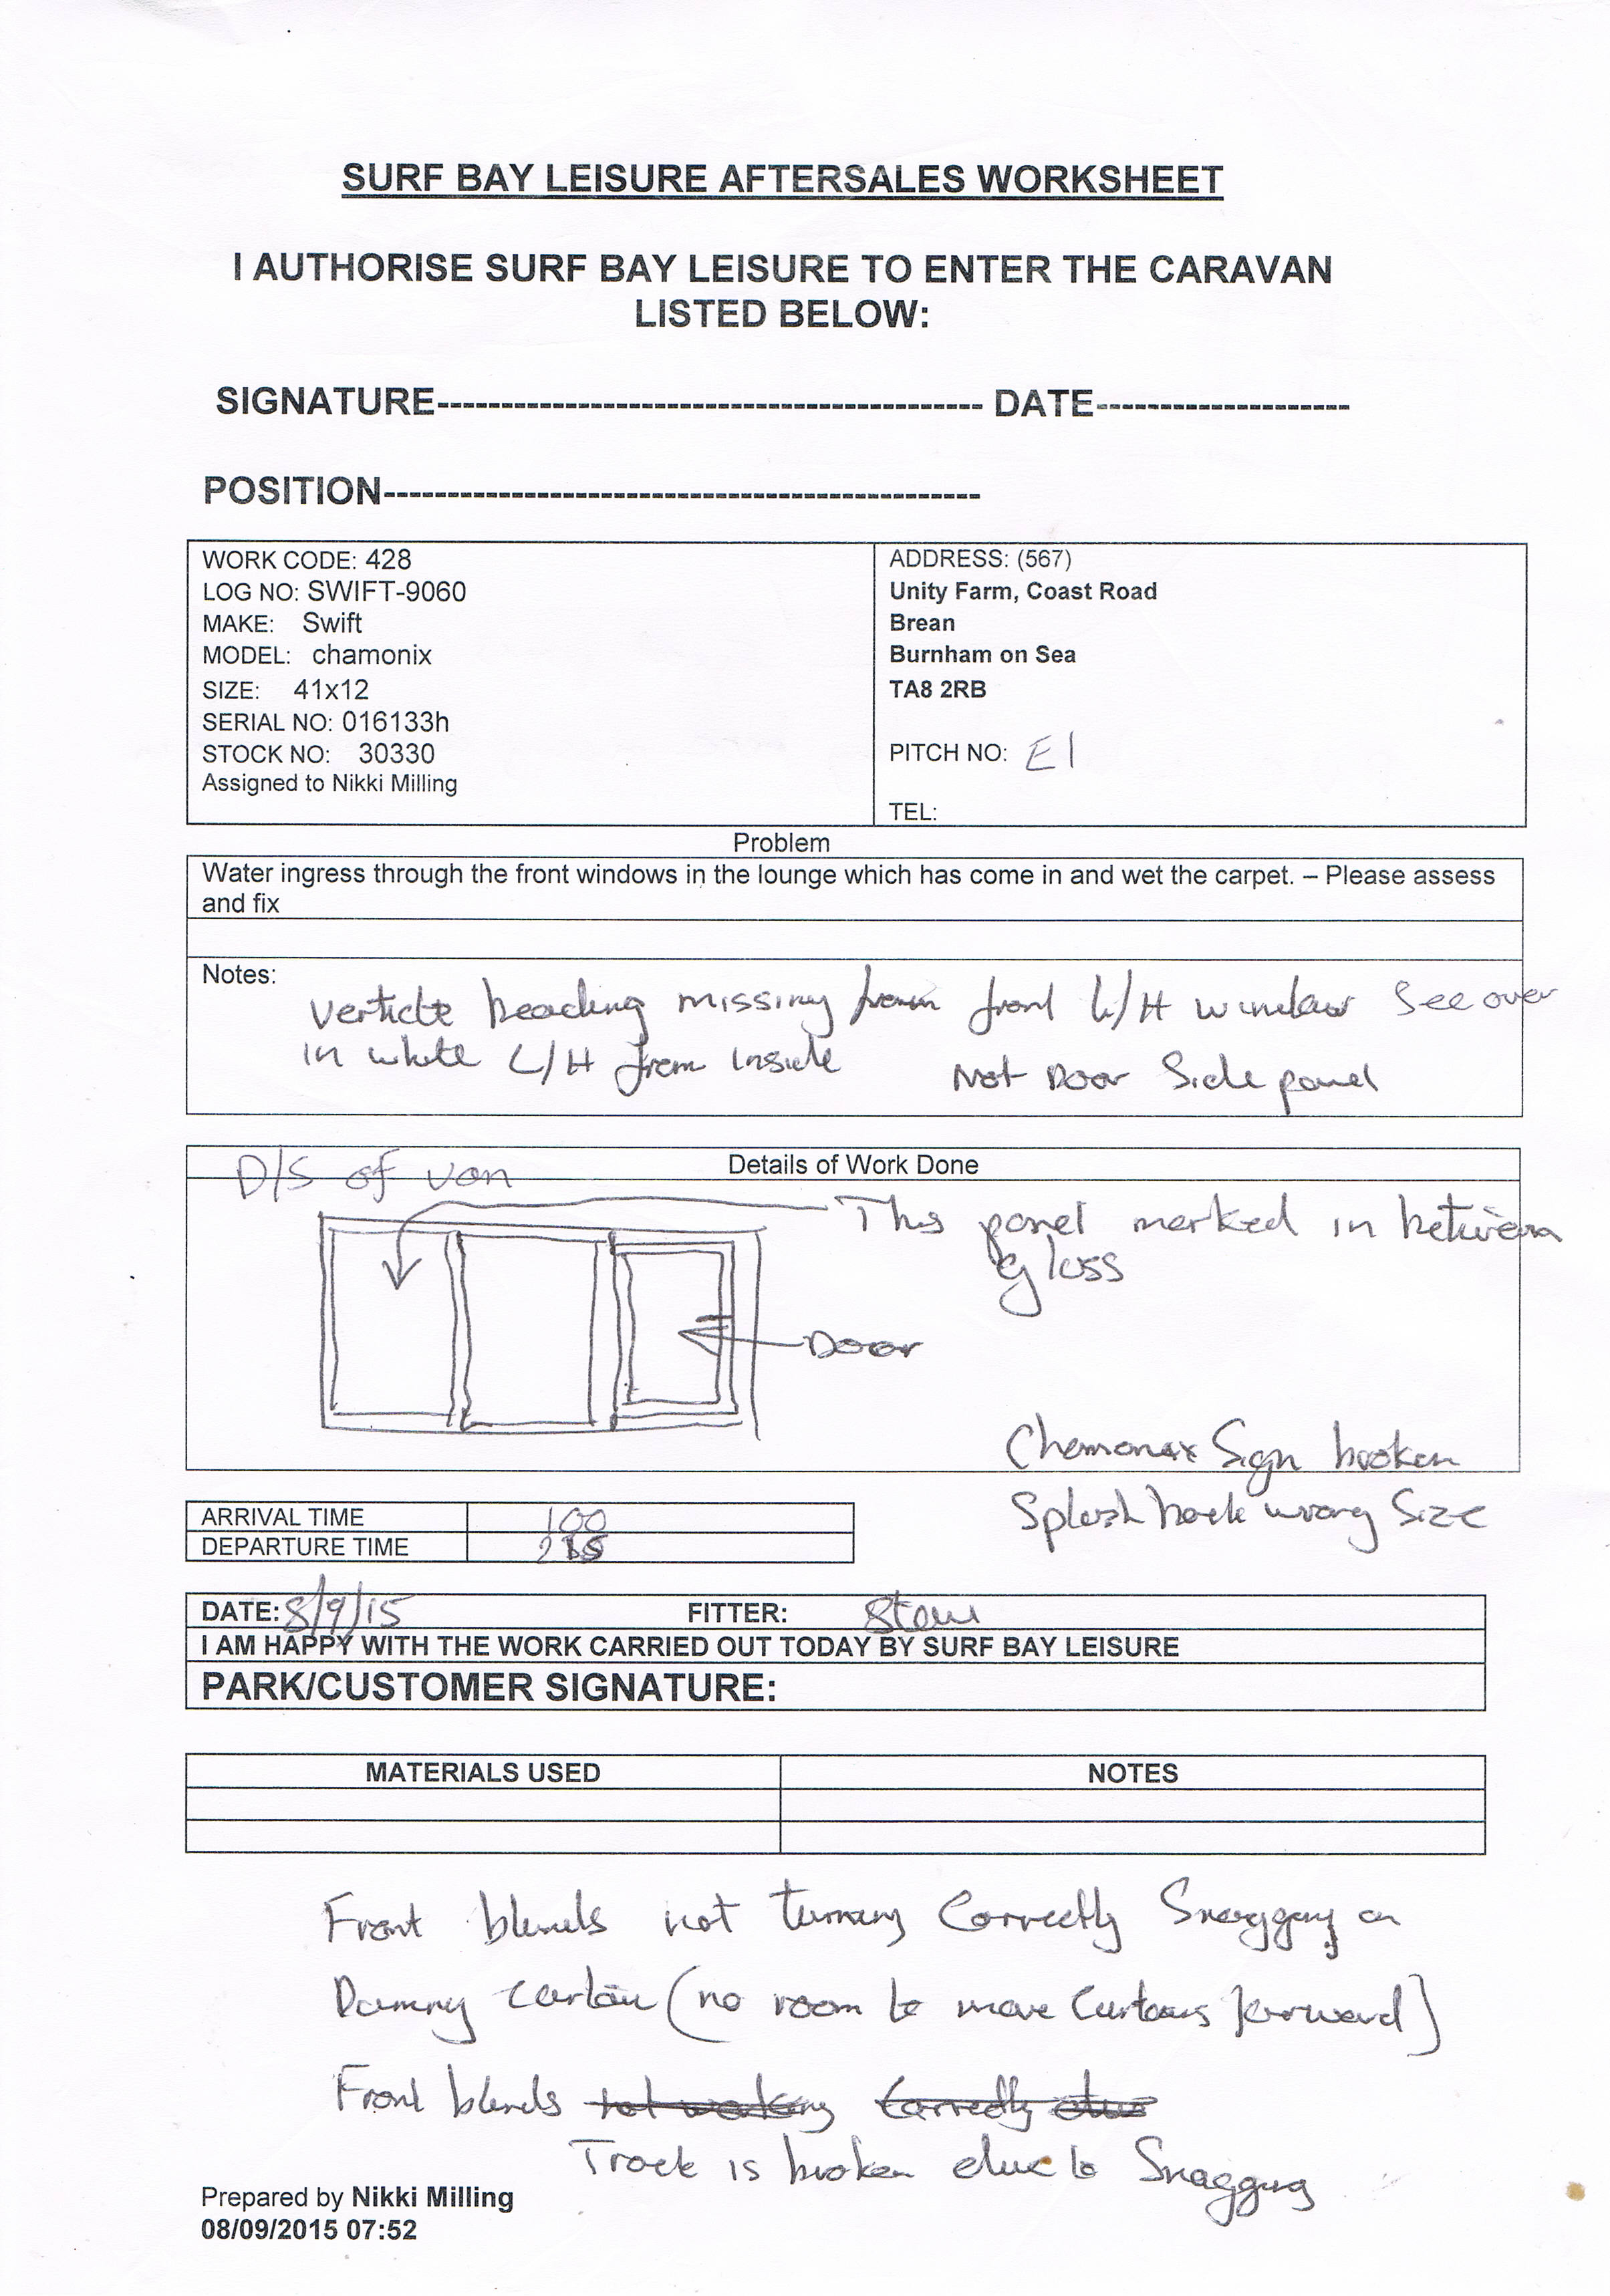 SURF BAY LEISURE AFTERSALES WORKSHEET
I AUTHORISE SURF BAY LEISURE TO ENTER THE CARAVAN
LISTED BELOW:
SIGNATURE------------------------------------------- DATE--------------------
POSITION-----------------------------------------------
WORK CODE: 428
LOG NO: SWIFT-9060
MAKE: Swift
MODEL: chamonix
SIZE: 41x12
SERIAL NO: 016133h
STOCK NO: 30330
Assigned to Nikki Milling
ADDRESS: (567)
Unity Farm, Coast Road
Brean
Burnham on Sea
TA8 2RB
PITCH NO: E1
TEL:
Problem
Water ingress through the front windows in the lounge which has come in and wet the carpet. – Please assess
and fix
Notes:
verticle beading missing from front L/H window See over
in white L/H from inside Not Door Side panel
Details of Work Done
D/S of van
This panel marked in between
glass
Door
Chamonax Sign broken
Splash back wrong Size
ARRIVAL TIME 100
DEPARTURE TIME
DATE: 8/9/15 FITTER: Stew
I AM HAPPY WITH THE WORK CARRIED OUT TODAY BY SURF BAY LEISURE
PARK/CUSTOMER SIGNATURE:
MATERIALS USED NOTES
Front blinds not turning Correctly Snagging on
Dummy curtain (no room to move Curtains forward)
Front blinds not working Correctly due
Track is broken due to Snagging
Prepared by Nikki Milling
08/09/2015 07:52